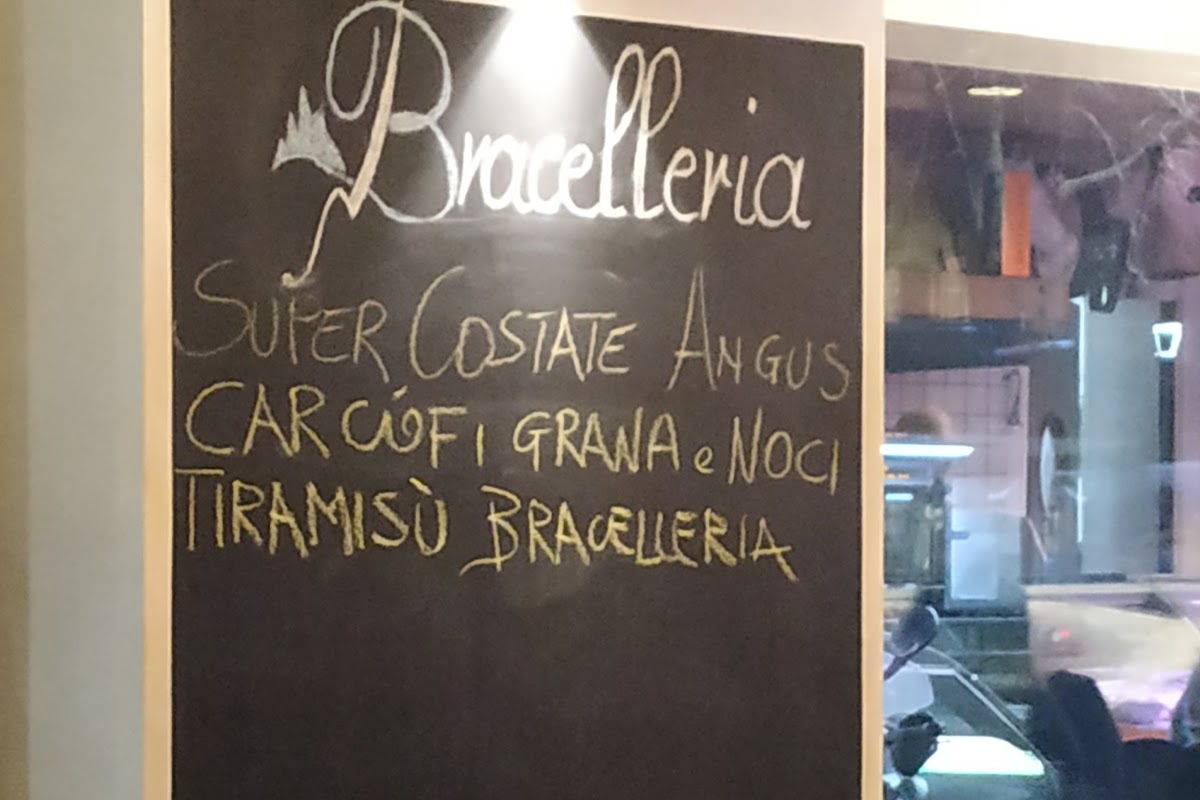 Bracelleria
SUPER COSTATE ANGUS
CARCIOFI GRANA e NOCI
TIRAMISÙ BRACELLERIA